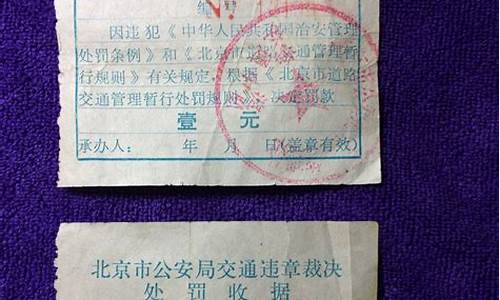 编号
因违犯《中华人民共和国治安管理
处罚条例》和《北京市道路交通管理暂
行规则》有关规定，根据《北京市道路
交通管理暂行处罚规则》，决定罚款
壹 元
承办人： 年 月 日（盖章有效）
北京市公安局交通违章裁决
处罚收据